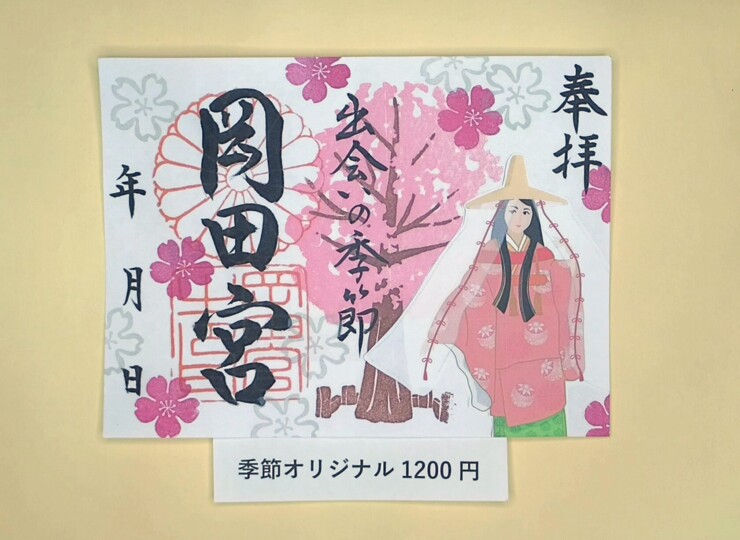 奉拝
出会いの季節
岡田宮
年 月 日
季節オリジナル 1200 円